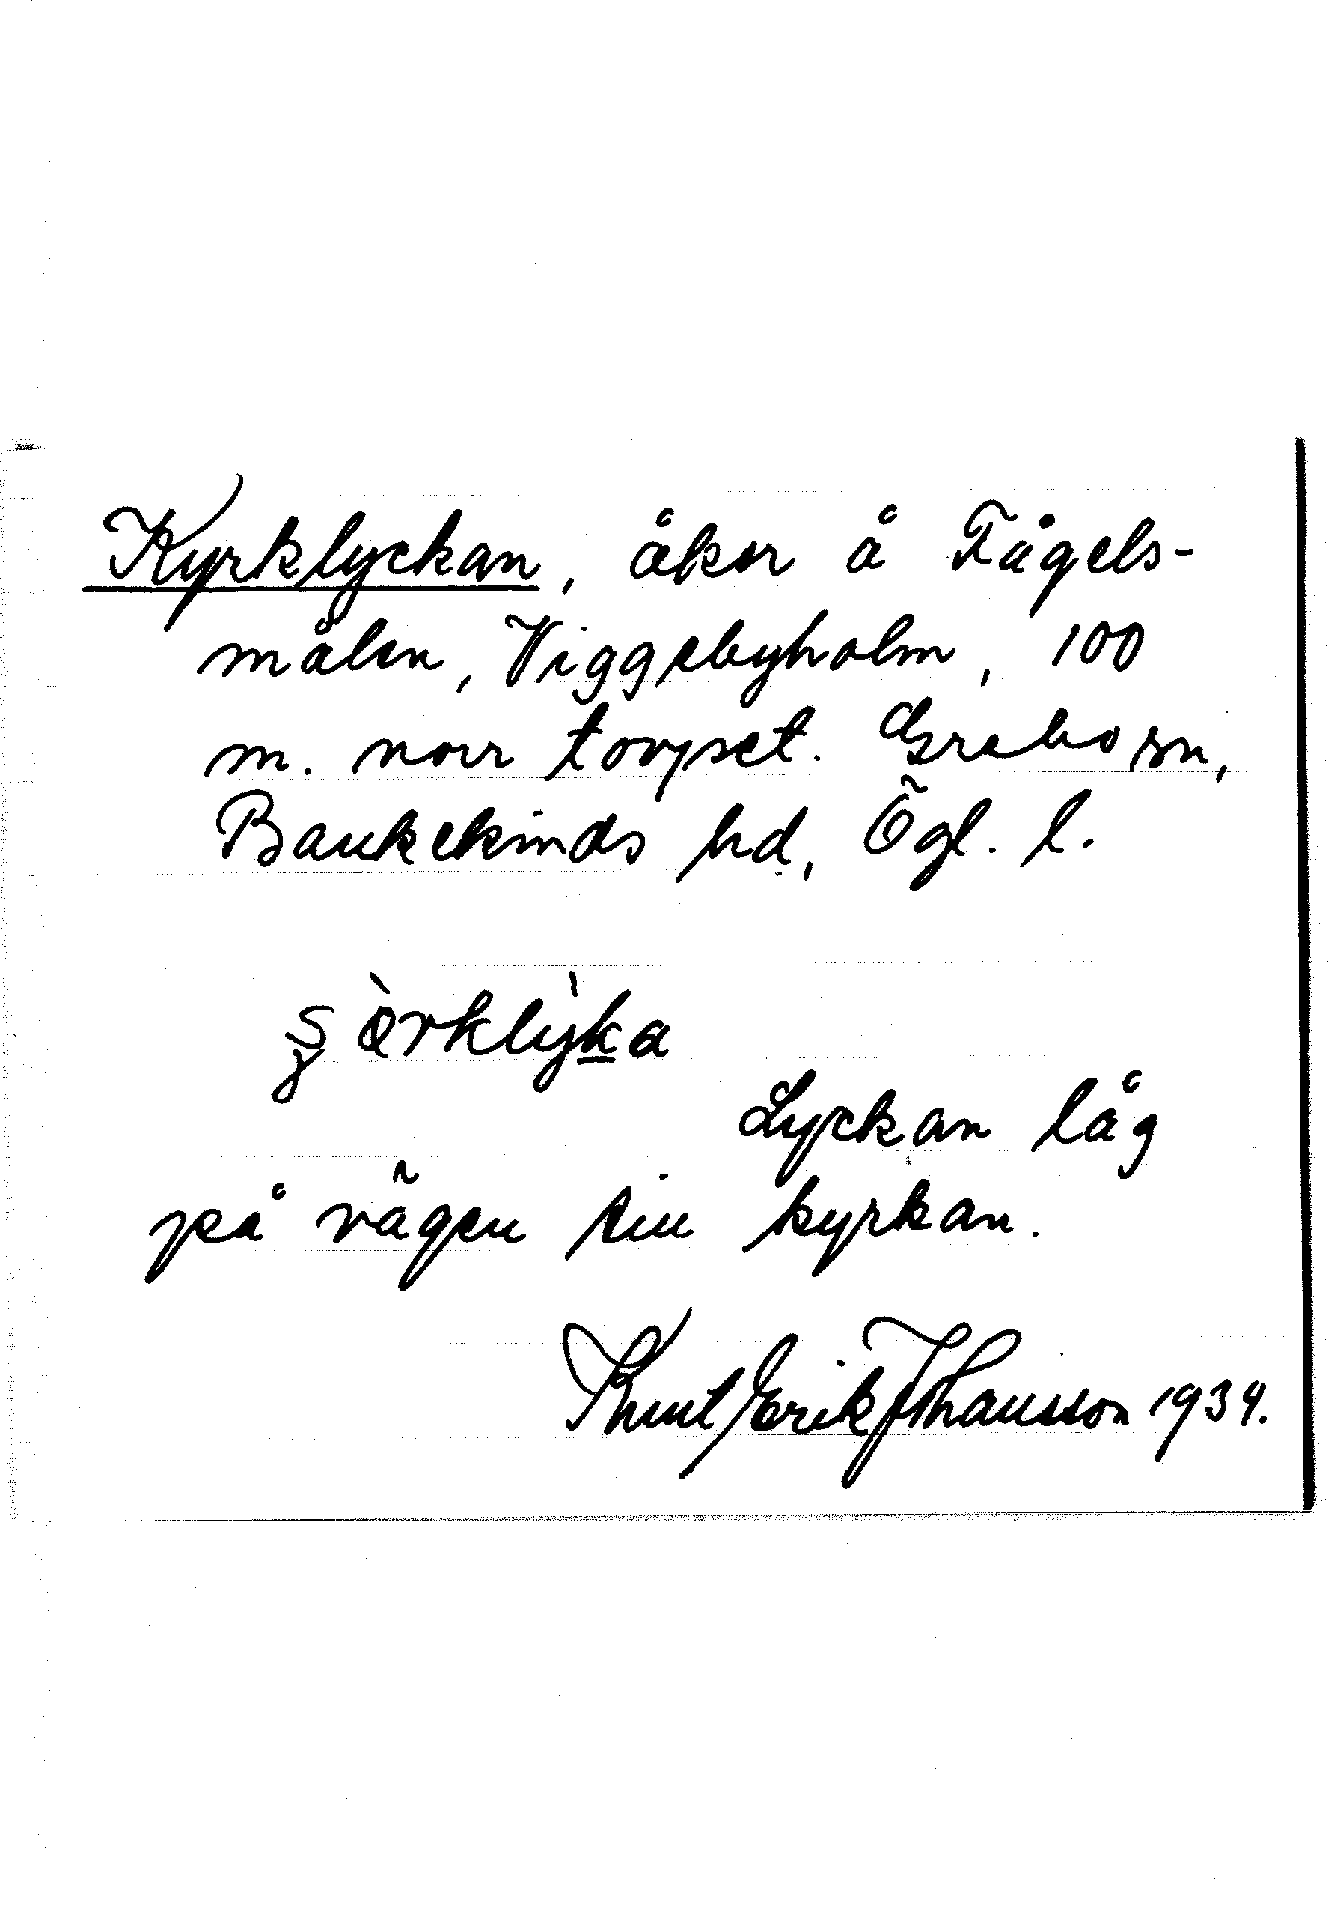 Kyrklyckan, åker å Fågels-
målen, Viggebyholm, 100
m. norr torpset. Grebo sn,
Bankekinds hd, Ögl. l.
Lyckan låg
på vägen till kyrkan.
Knut Erik Johansson 1934.